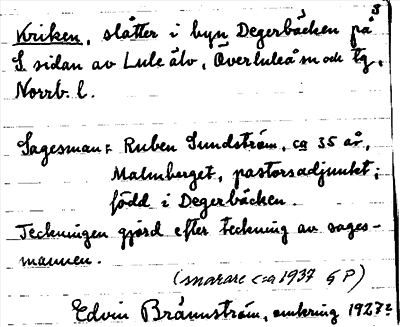 Kriken, slåtter i byn Degerbäcken på
S. sidan av Lule älv, Överluleå sn och tg,
Norrb. l.
Sagesman: Ruben Sundström, ca 35 år,
Malmberget, pastorsadjunkt;
född i Degerbäcken.
Teckningen gjord efter teckning av sages-
mannen.
(snarare ca 1937 G P)
Edvin Brännström, omkring 1927?